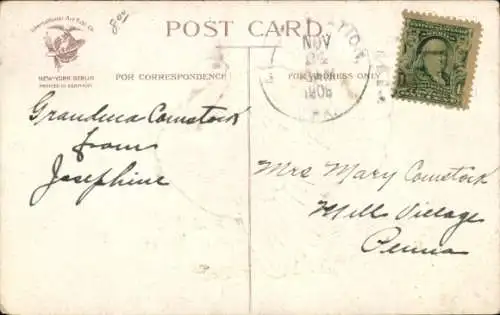 International Art Pub. Co.
NEW-YORK BERLIN
PRINTED IN GERMANY
POST CARD.
FOR CORRESPONDENCE
FOR ADDRESS ONLY
NOV
Grandma Comstock
from
Josephine
Mrs Mary Comstock
Mill Village
Penna